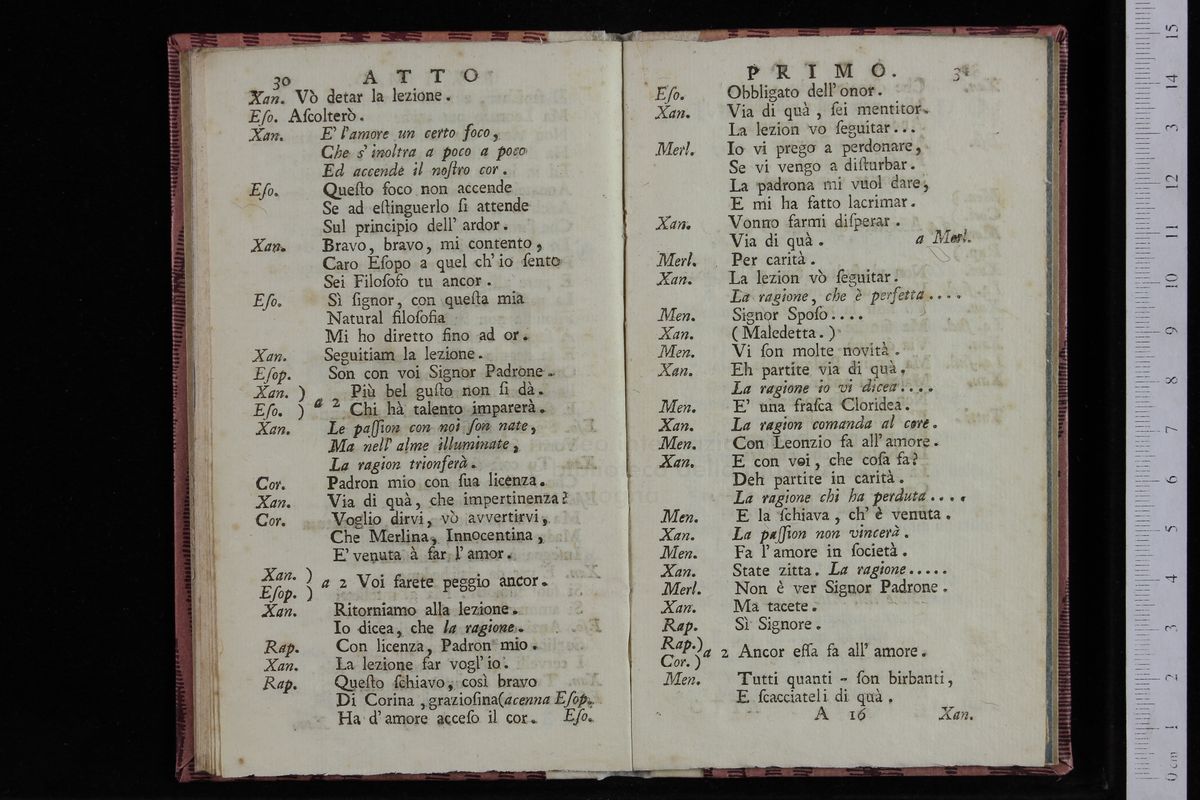 30 ATTO
Xan. Vò detar la lezione.
Eſo. Aſcolterò.
Xan. E' l'amore un certo foco,
Che s' inoltra a poco a poco
Ed accende il noſtro cor.
Eſo. Queſto foco non accende
Se ad eſtinguerlo ſi attende
Sul principio dell' ardor.
Xan. Bravo, bravo, mi contento,
Caro Eſopo a quel ch' io ſento
Sei Filoſofo tu ancor.
Eſo. Sì ſignor, con queſta mia
Natural filoſofia
Mi ho diretto fino ad or.
Xan. Seguitiam la lezione.
Eſop. Son con voi Signor Padrone.
Xan. ) a 2 Più bel guſto non ſi dà.
Eſo. ) Chi hà talento imparerà.
Xan. Le paſſion con noi ſon nate,
Ma nell' alme illuminate,
La ragion trionferà.
Cor. Padron mio con ſua licenza.
Xan. Via di quà, che impertinenza?
Cor. Voglio dirvi, vò avvertirvi,
Che Merlina, Innocentina,
E' venuta à far l' amor.
Xan. ) a 2 Voi farete peggio ancor.
Eſop. )
Xan. Ritorniamo alla lezione.
Io dicea, che la ragione.
Rap. Con licenza, Padron mio.
Xan. La lezione far vogl' io.
Rap. Queſto ſchiavo, così bravo
Di Corina, grazioſina (acenna Eſop.
Ha d' amore acceſo il cor. Eſo.
PRIMO. 31
Eſo. Obbligato dell' onor.
Xan. Via di quà, ſei mentitor.
La lezion vo ſeguitar...
Merl. Io vi prego a perdonare,
Se vi vengo a diſturbar.
La padrona mi vuol dare,
E mi ha fatto lacrimar.
Xan. Vonno farmi diſperar.
Via di quà. a Merl.
Merl. Per carità.
Xan. La lezion vò ſeguitar.
La ragione, che è perfetta....
Men. Signor Spoſo....
Xan. (Maledetta.)
Men. Vi ſon molte novità.
Xan. Eh partite via di quà.
La ragione io vi dicea....
Men. E' una fraſca Cloridea.
Xan. La ragion comanda al core.
Men. Con Leonzio fa all' amore.
Xan. E con voi, che coſa fa?
Deh partite in carità.
La ragione chi ha perduta....
Men. E la ſchiava, ch' è venuta.
Xan. La paſſion non vincerà.
Men. Fa l' amore in ſocietà.
Xan. State zitta. La ragione.....
Merl. Non è ver Signor Padrone.
Xan. Ma tacete.
Rap. Sì Signore.
Rap.) a 2 Ancor eſſa fa all' amore.
Cor. )
Men. Tutti quanti - ſon birbanti,
E ſcacciateli di quà.
A 16 Xan.
0 cm 1 2 3 4 5 6 7 8 9 10 11 12 13 14 15